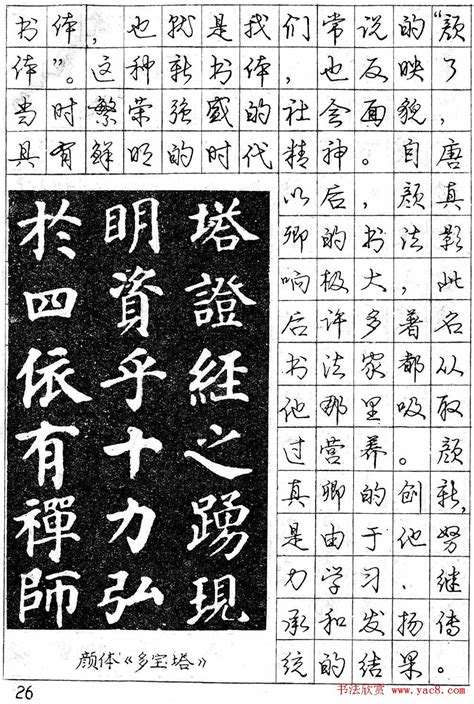 书体，也就是我们常说的“颜
体”。这种新书体，也反映了
当时繁荣强盛的社会面貌，
具有鲜明的时代精神。自唐
以后，颜真
卿的书法影
响极大，此
后许多著名
书法家都从
他那里吸取
过营养。颜
真卿的创新，
是由于他努
力学习、继
承和发扬传
统的结果。
塔證經之踴現
明資乎十力弘
於四依有禪師
颜体《多宝塔》
26
书法欣赏 www.yac8.com